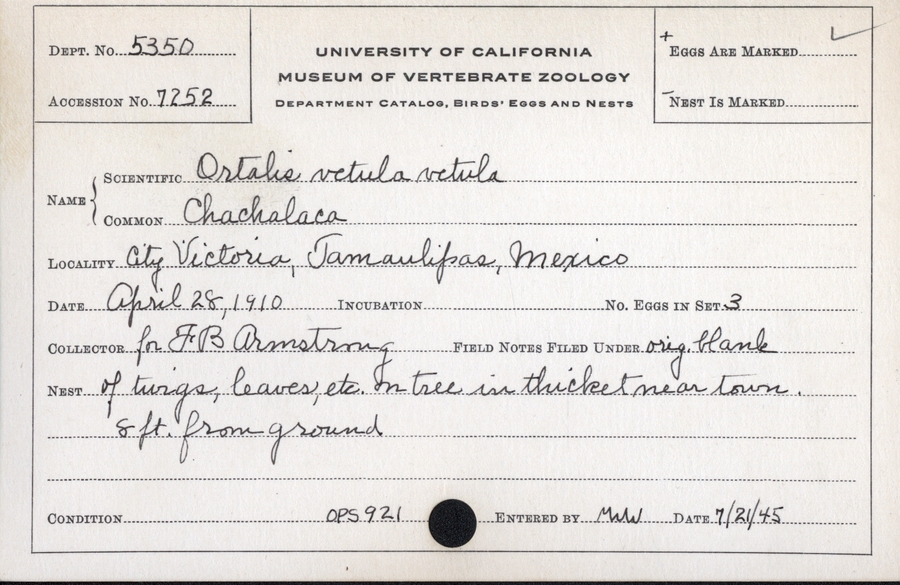 DEPT. No. 5350
ACCESSION No. 7252
UNIVERSITY OF CALIFORNIA
MUSEUM OF VERTEBRATE ZOOLOGY
DEPARTMENT CATALOG, BIRDS' EGGS AND NESTS
+ EGGS ARE MARKED ✓
- NEST IS MARKED
NAME
SCIENTIFIC Ortalis vetula vetula
COMMON Chachalaca
LOCALITY City Victoria, Tamaulipas, Mexico
DATE April 28, 1910 INCUBATION No. EGGS IN SET 3
COLLECTOR for F B Armstrong FIELD NOTES FILED UNDER orig. blank
NEST of twigs, leaves, etc. In tree in thicket near town.
8 ft. from ground
CONDITION OPS 921 ENTERED BY DATE 7/21/45